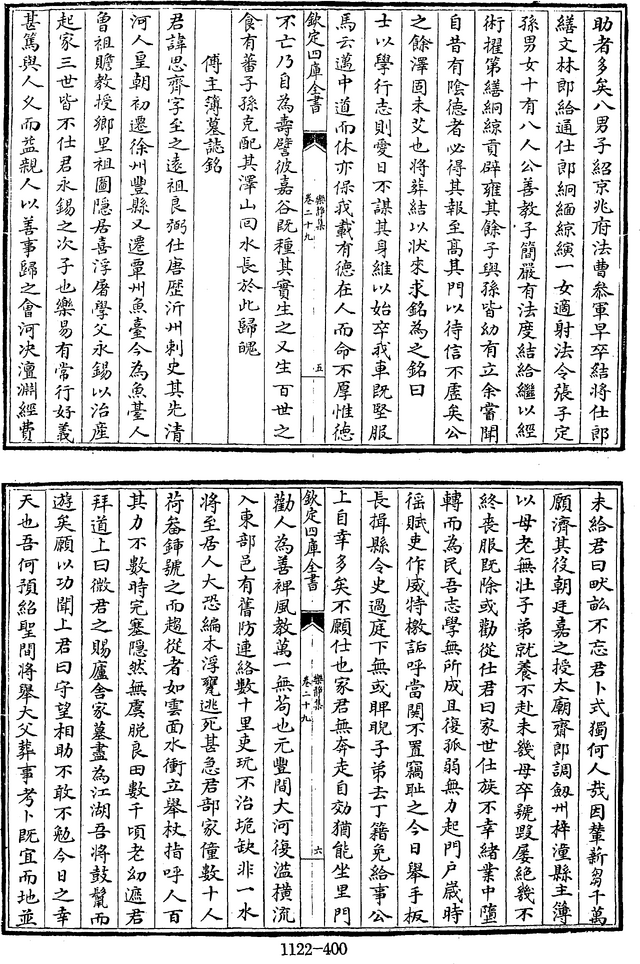 助者多矣八男子紹京兆府法曹叅軍早卒結將仕郎
繕文林郎給通仕郎絅緬綜演一女適射法令張子定
孫男女十有八人公善教子簡嚴有法度結給繼以經
術擢第繕絅綜貢辟雍其餘子與孫皆幼有立余嘗聞
自昔有隂德者必得其報至髙其門以待信不虛矣公
之餘澤固未艾也將葬結以狀來求銘為之銘曰
士以學行志則愛日不謀其身維以始卒我車既堅服
馬云邁中道而休亦保我載有德在人而命不厚惟德
欽定四庫全書
樂靜集
卷二十九
五
不亡乃自為壽譬彼嘉谷既種其實生之又生百世之
食有蕃子孫克配其澤山回水長於此歸魄
傅主簿墓誌銘
君諱思齊字至之遠祖良弼仕唐歴沂州刺史其先清
河人皇朝初遷徐州豐縣又遷單州魚臺今為魚臺人
魯祖贍教授鄉里祖圖隱居喜浮屠學父永錫以治産
起家三世皆不仕君永錫之次子也樂易有常行好義
甚篤與人久而益親人以善事歸之會河决澶淵經費
未給君曰畎訟不忘君卜式獨何人哉因輦薪芻千萬
願濟其役朝廷嘉之授太廟齋郎調劔州梓潼縣主簿
以母老無壯子弟就養不赴未幾母卒號毁屢絶幾不
終喪服既除或勸從仕君曰家世仕族不幸緒業中墮
轉而為民吾志學無所成且復孤弱無力起門戸歲時
徭賦吏作威特檄詬呼當闗不置竊耻之今日舉手板
長揖縣令史過庭下無或睥睨子弟去丁籍免給事公
上自幸多矣不願仕也家君無奔走自効猶能坐里門
欽定四庫全書
樂靜集
卷二十九
六
勸人為善裨風教萬一無茍也元豐間大河復溢横流
入東部邑有舊防連絡數十里吏玩不治垝缺非一水
將至居人大恐編木浮甖逃死甚急君部家僮數十人
荷畚鍤號之而趨從者如雲面水衝立舉杖指呼人百
其力不數時完塞隱然無虞脱良田數千頃老幼遮君
拜道上曰微君之賜廬舍冢墓盡為江湖吾將鼓鬛而
遊矣願以功聞上君曰守望相助不敢不勉今日之幸
天也吾何預紹聖間將舉大父葬事考卜既宜而地並
1122-400